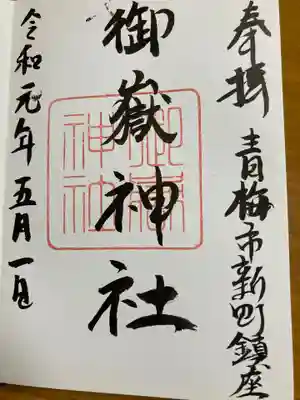 奉拝 青梅市新町鎮座
御嶽神社
令和元年五月一日
御嶽神社